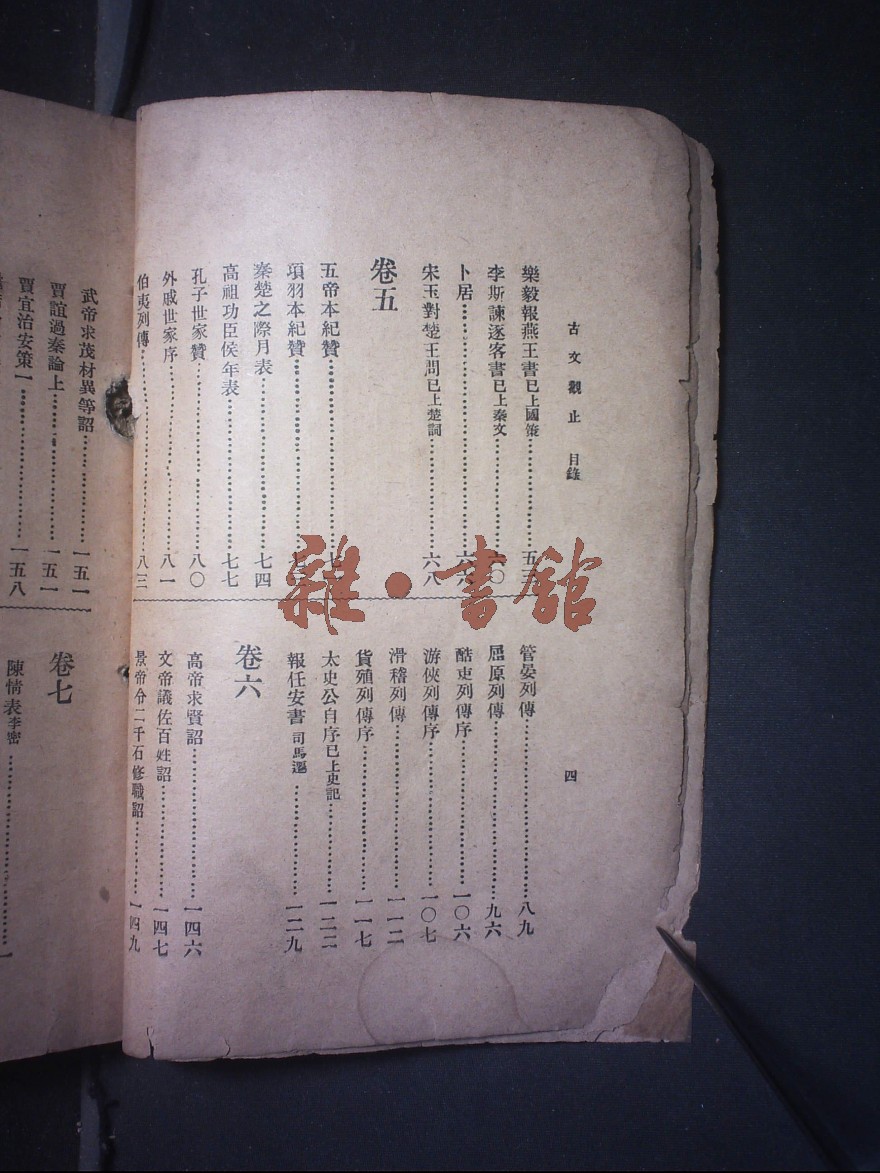 古文觀止 目錄 四
樂毅報燕王書已上國策 五
李斯諫逐客書已上秦文
卜居
宋玉對楚王問已上楚詞 六八
卷五
五帝本紀贊
項羽本紀贊
秦楚之際月表 七四
高祖功臣侯年表 七七
孔子世家贊 八〇
外戚世家序 八一
伯夷列傳 八三
管晏列傳 八九
屈原列傳 九六
酷吏列傳序 一〇六
游俠列傳序 一〇七
滑稽列傳 一一二
貨殖列傳序 一一七
太史公自序已上史記 一二二
報任安書 司馬遷 一二九
卷六
高帝求賢詔 一四六
文帝議佐百姓詔 一四七
景帝令二千石修職詔 一四九
武帝求茂材異等詔 一五一
賈誼過秦論上 一五一
賈宜治安策一 一五八
卷七
陳情表李密
雜·書館